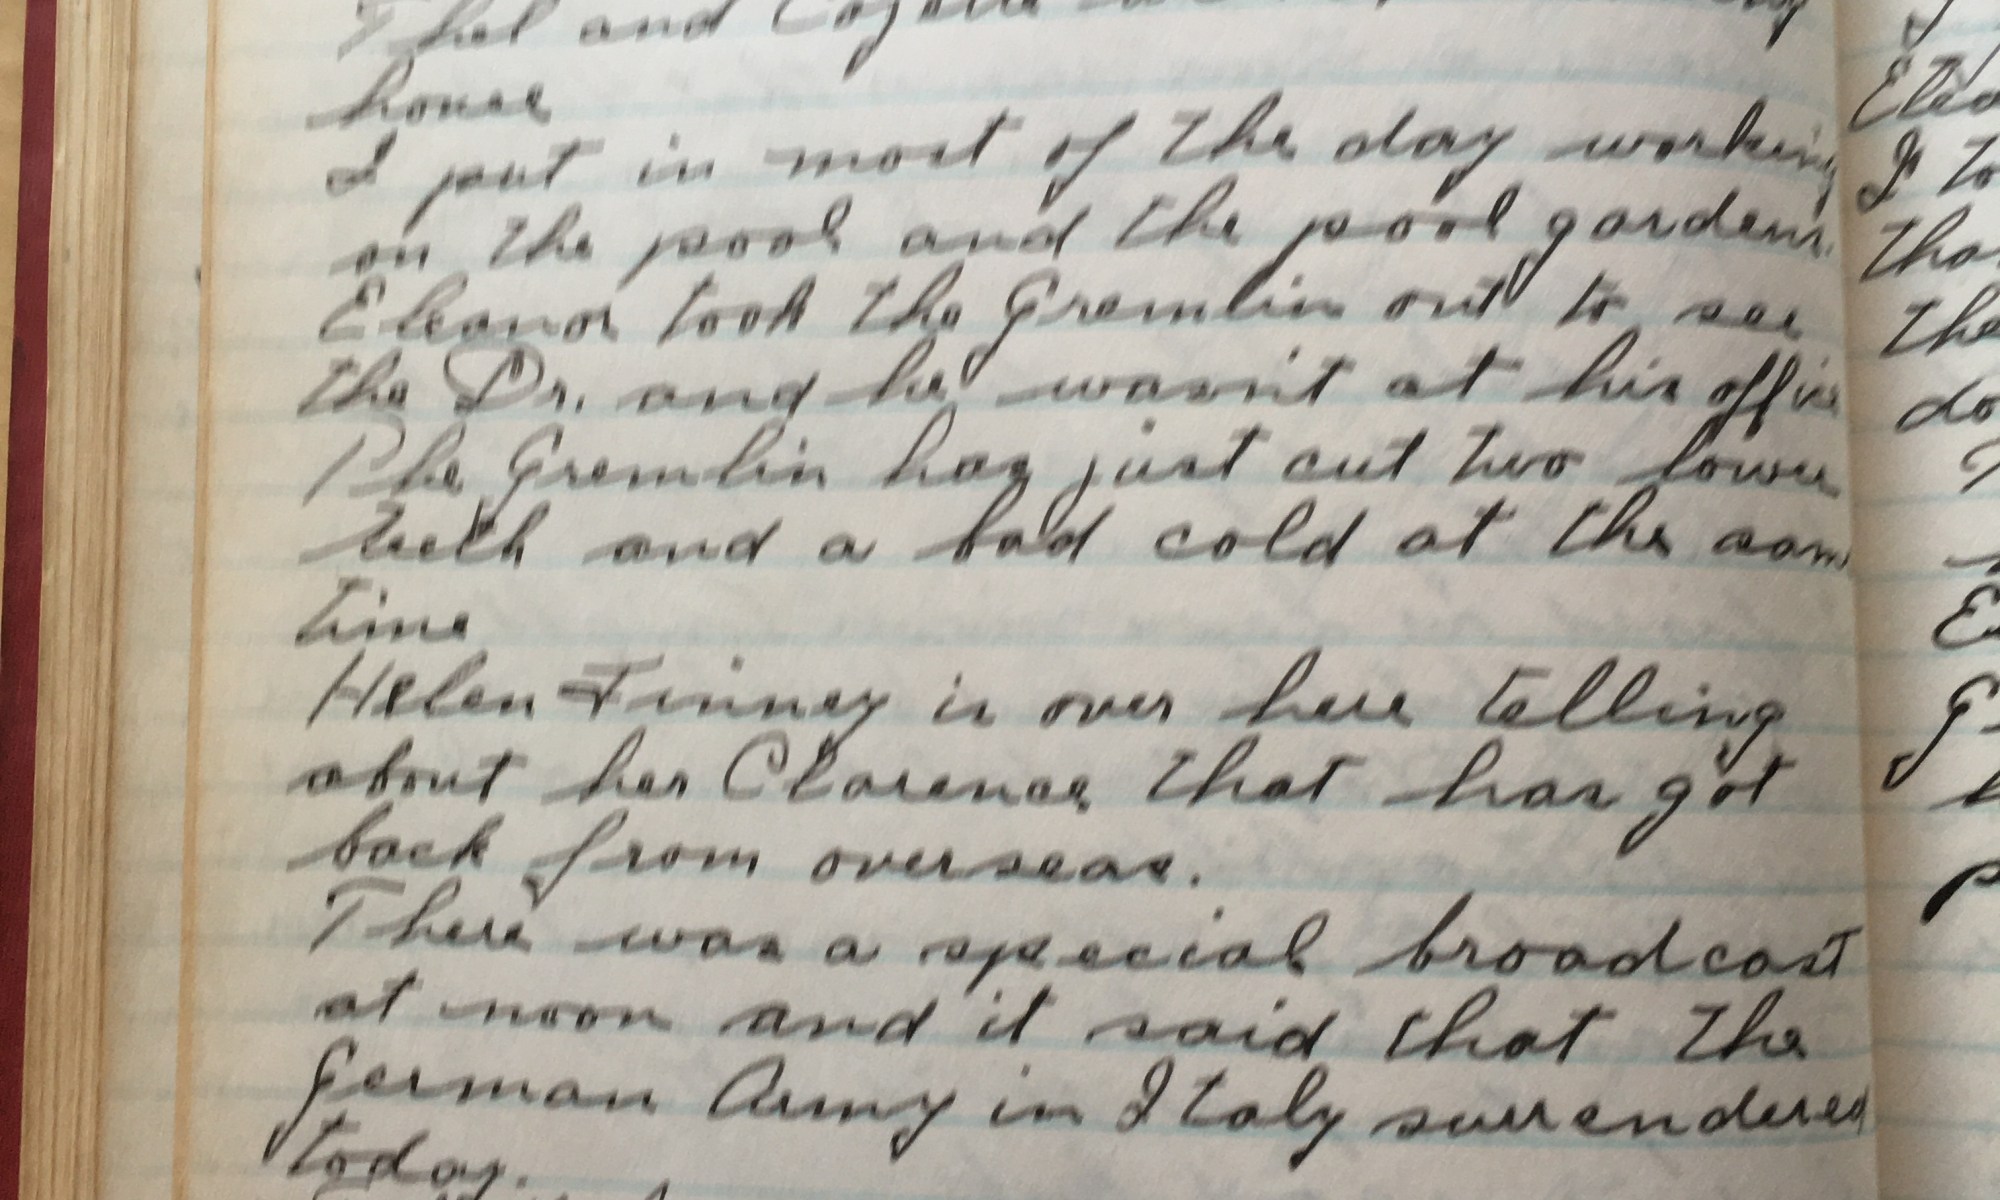 and
house
I put in most of the day working
on the pool and the pool gardens.
Eleanor took the Gremlin out to see
the Dr. and he wasn't at his office
The Gremlin has just cut two lower
teeth and a bad cold at the same
time
Helen Finney is over here telling
about her Clarence that has got
back from overseas.
There was a special broadcast
at noon and it said that the
German Army in Italy surrendered
today.